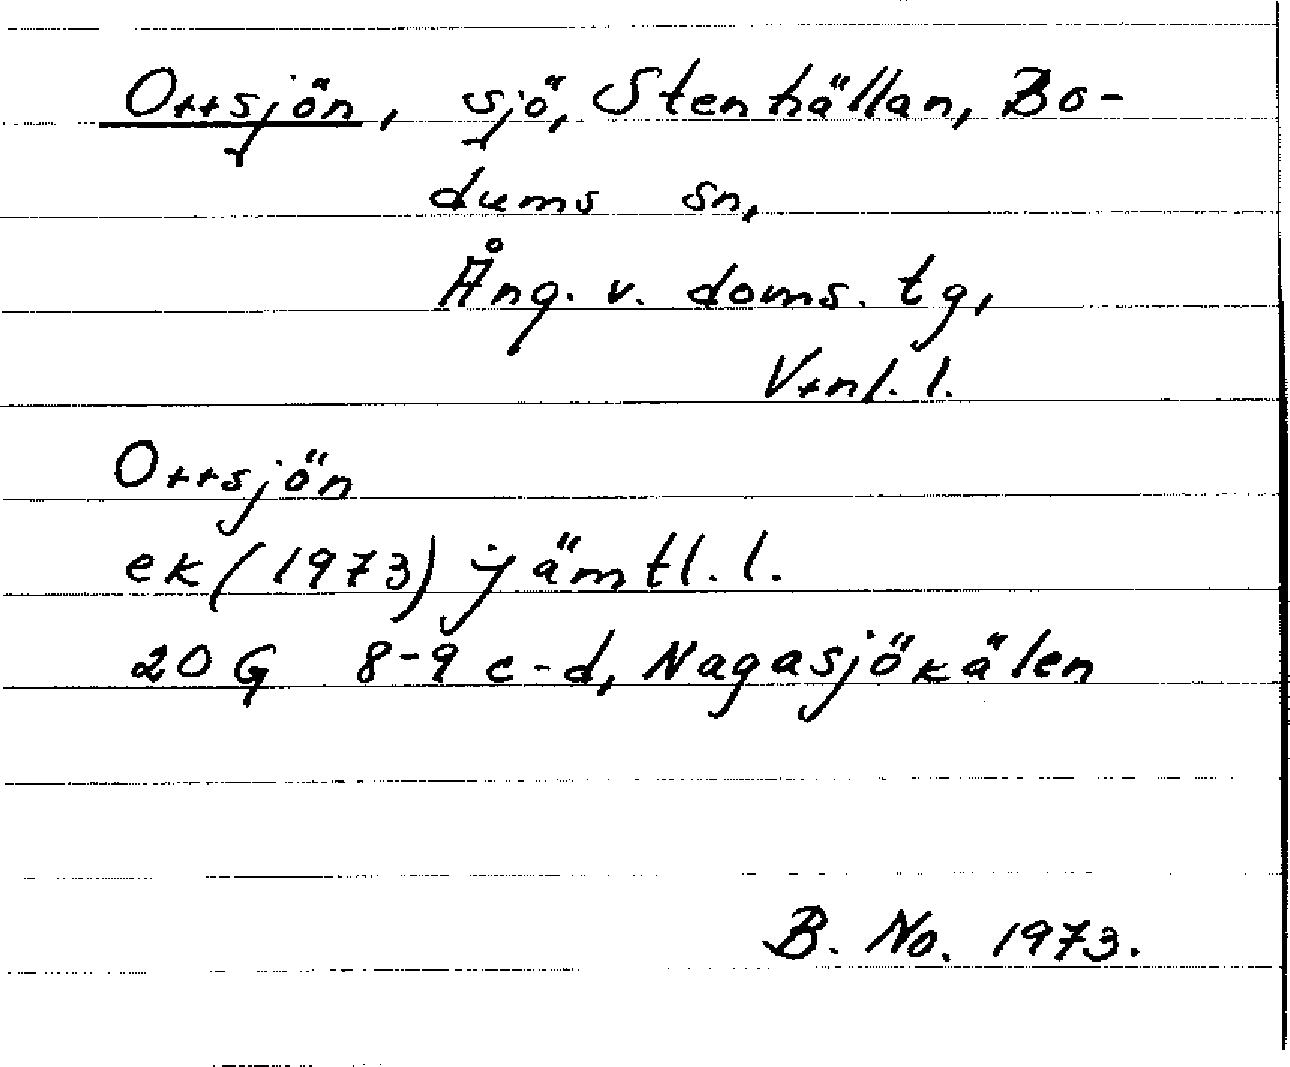 Ottsjön, sjö, Stenhällan, Bo-
dums sn,
Ång. v. doms. tg,
Vtnl. l.
Ottsjön
ek (1973) jämtl. l.
20 G 8-9 c-d, Nagasjökälen
B. No. 1973.